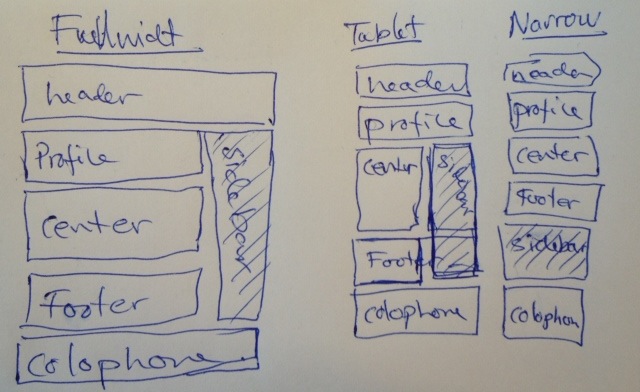 Fullwidt
header
Profile
sidebar
center
Footer
Colophone
Tablet
header
profile
center
sidebar
Footer
colophone
Narrow
header
profile
center
Footer
sidebar
colophon